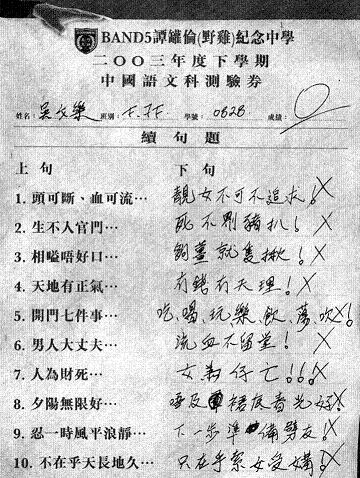 BAND5譚鑵倫(野雞)紀念中學
二〇〇三年度下學期
中國語文科測驗券
姓名: 吳文樂 班別: 學號: 0828 成績: 0
續句題
上句 下句
1. 頭可斷、血可流… 靚女不可不追求! X
2. 生不入官門… 死不劏豬扒! X
3. 相嗌唔好口… 夠薑就隻揪! X
4. 天地有正氣… 有錢有天理! X
5. 開門七件事… 吃、喝、玩、樂、飲、蕩、吹! X
6. 男人大丈夫… 流血不留堂! X
7. 人為財死… 女為仔亡!!! X
8. 夕陽無限好… 唔及裙底春光好! X
9. 忍一時風平浪靜… 下一步準備劈友! X
10. 不在乎天長地久… 只在乎索女受媾! X